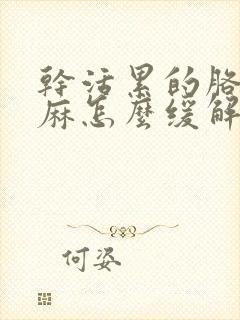 幹活累的胳
麻怎麼緩解
何姿